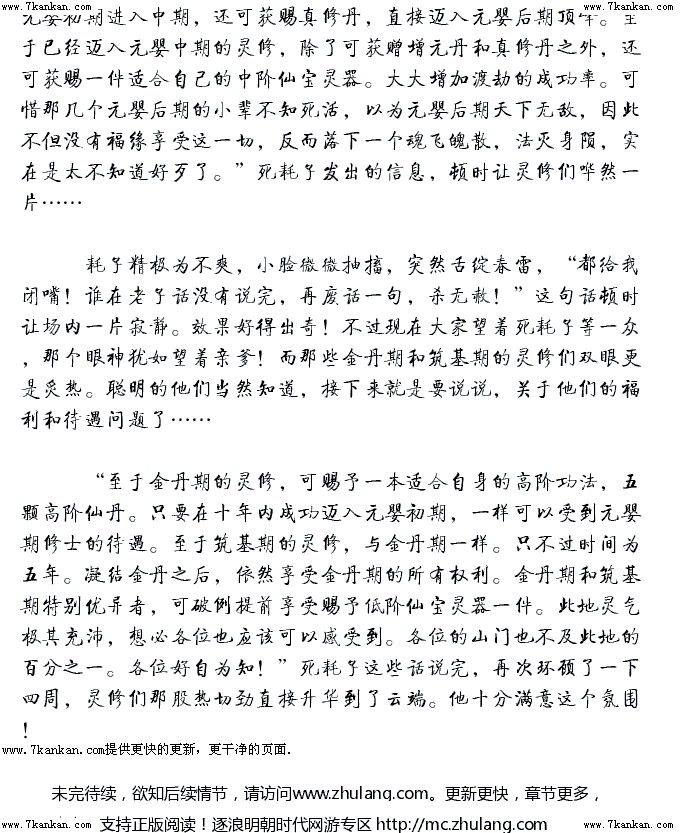 www.7kankan.com www.7kankan.com www.7kankan.com www.7kankan.com
元婴初期进入中期，还可获赐真修丹，直接迈入元婴后期顶峰。至
于已经迈入元婴中期的灵修，除了可获赠增元丹和真修丹之外，还
可获赐一件适合自己的中阶仙宝灵器。大大增加渡劫的成功率。可
惜那几个元婴后期的小辈不知死活，以为元婴后期天下无敌，因此
不但没有福缘享受这一切，反而落下一个魂飞魄散，法灭身陨，实
在是太不知道好歹了。”死耗子发出的信息，顿时让灵修们哗然一
片……
耗子精极为不爽，小脸微微抽搐，突然舌绽春雷，“都给我
闭嘴！谁在老子话没有说完，再废话一句，杀无赦！”这句话顿时
让场内一片寂静。效果好得出奇！不过现在大家望着死耗子等一众
，那个眼神犹如望着亲爹！而那些金丹期和筑基期的灵修们双眼更
是炙热。聪明的他们当然知道，接下来就是要说说，关于他们的福
利和待遇问题了……
“至于金丹期的灵修，可赐予一本适合自身的高阶功法，五
颗高阶仙丹。只要在十年内成功迈入元婴初期，一样可以受到元婴
期修士的待遇。至于筑基期的灵修，与金丹期一样。只不过时间为
五年。凝结金丹之后，依然享受金丹期的所有权利。金丹期和筑基
期特别优异者，可破例提前享受赐予低阶仙宝灵器一件。此地灵气
极其充沛，想必各位也应该可以感受到。各位的山门也不及此地的
百分之一。各位好自为知！”死耗子这些话说完，再次环顾了一下
四周，灵修们那股热切劲直接升华到了云端。他十分满意这个氛围
！
www.7kankan.com提供更快的更新，更干净的页面.
未完待续，欲知后续情节，请访问www.zhulang.com。更新更快，章节更多，
www.7kankan.com 支持正版阅读！逐浪明朝时代网游专区 http://mc.zhulang.com www.7kankan.com